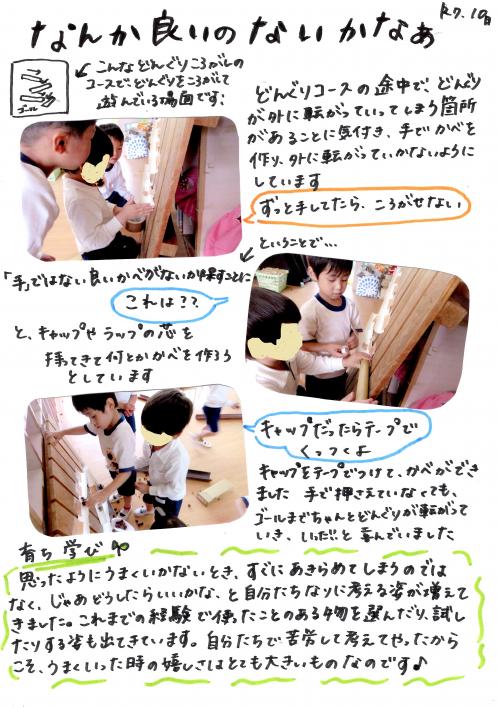 R7.10月
なんか良いのないかなぁ
こんなどんぐりころがしの
コースで、どんぐりをころがして
遊んでいる場面です！
ゴール
どんぐりコースの途中で、どんぐり
が外に転がっていってしまう箇所
があることに気付き、手でかべを
作り、外に転がっていかないように
しています
ずっと手してたら、ころがせない
ということで…
「手」ではない良いかべがないか探すことに
これは??
と、キャップやラップの芯を
持ってきて何とかかべを作ろう
としています
キャップだったらテープで
くっつくよ
キャップをテープでつけて、かべができ
ました 手で押さえていなくても、
ゴールまでちゃんとどんぐりが転がって
いき、「いいだ!」と喜んでいました
育ち 学び
思ったようにうまくいかないとき、すぐにあきらめてしまうのでは
なく、じゃあどうしたらいいかな、と自分たちなりに考える姿が増えて
きました。これまでの経験で使ったことのある物を選んだり、試し
たりする姿も出てきています。自分たちで苦労して考えてやったから
こそ、うまくいった時の嬉しさはとても大きいものなのです♪